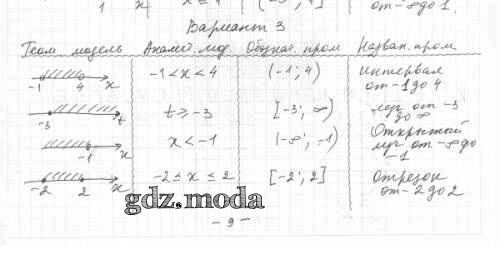 1 x
от -∞ до 1.
Вариант 3
Геом модель Аналит. мод. Обознач. пром Назван. пром.
-1 4 x -1 < x < 4 (-1; 4) интервал
от -1 до 4
-3 t t ≥ -3 [-3; ∞) луч от -3
до ∞
-1 x x < -1 (-∞; -1) Открытый
луч от -∞ до
-1
-2 2 x -2 ≤ x ≤ 2 [-2; 2] Отрезок
от -2 до 2
gdz.moda
- 9 -